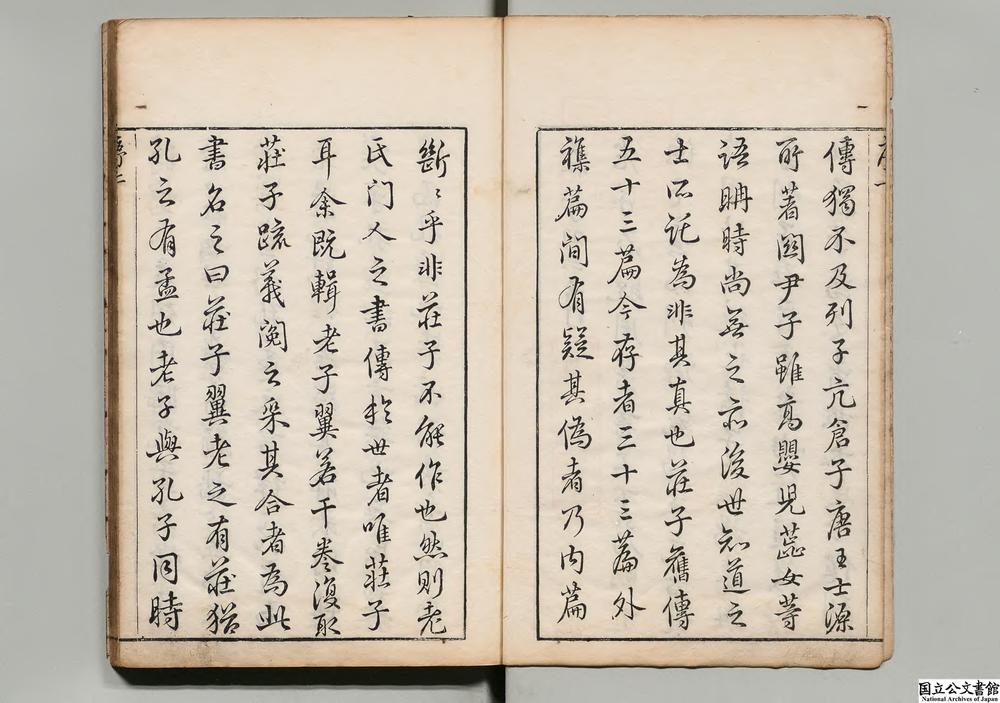 傳獨不及列子亢倉子唐王士源
所著關尹子雖高嬰兒蕊女等
語聃時尚無之亦後世知道之
士所託為非其真也莊子舊傳
五十三篇今存者三十三篇外
襍篇間有疑其偽者乃內篇
斷〻乎非莊子不能作也然則老
氏门人之書傳於世者唯莊子
耳余既輯老子翼若干卷復取
莊子疏義閱之采其合者為此
書名之曰莊子翼老之有莊猶
孔之有孟也老子與孔子同時
国立公文書館
National Archives of Japan